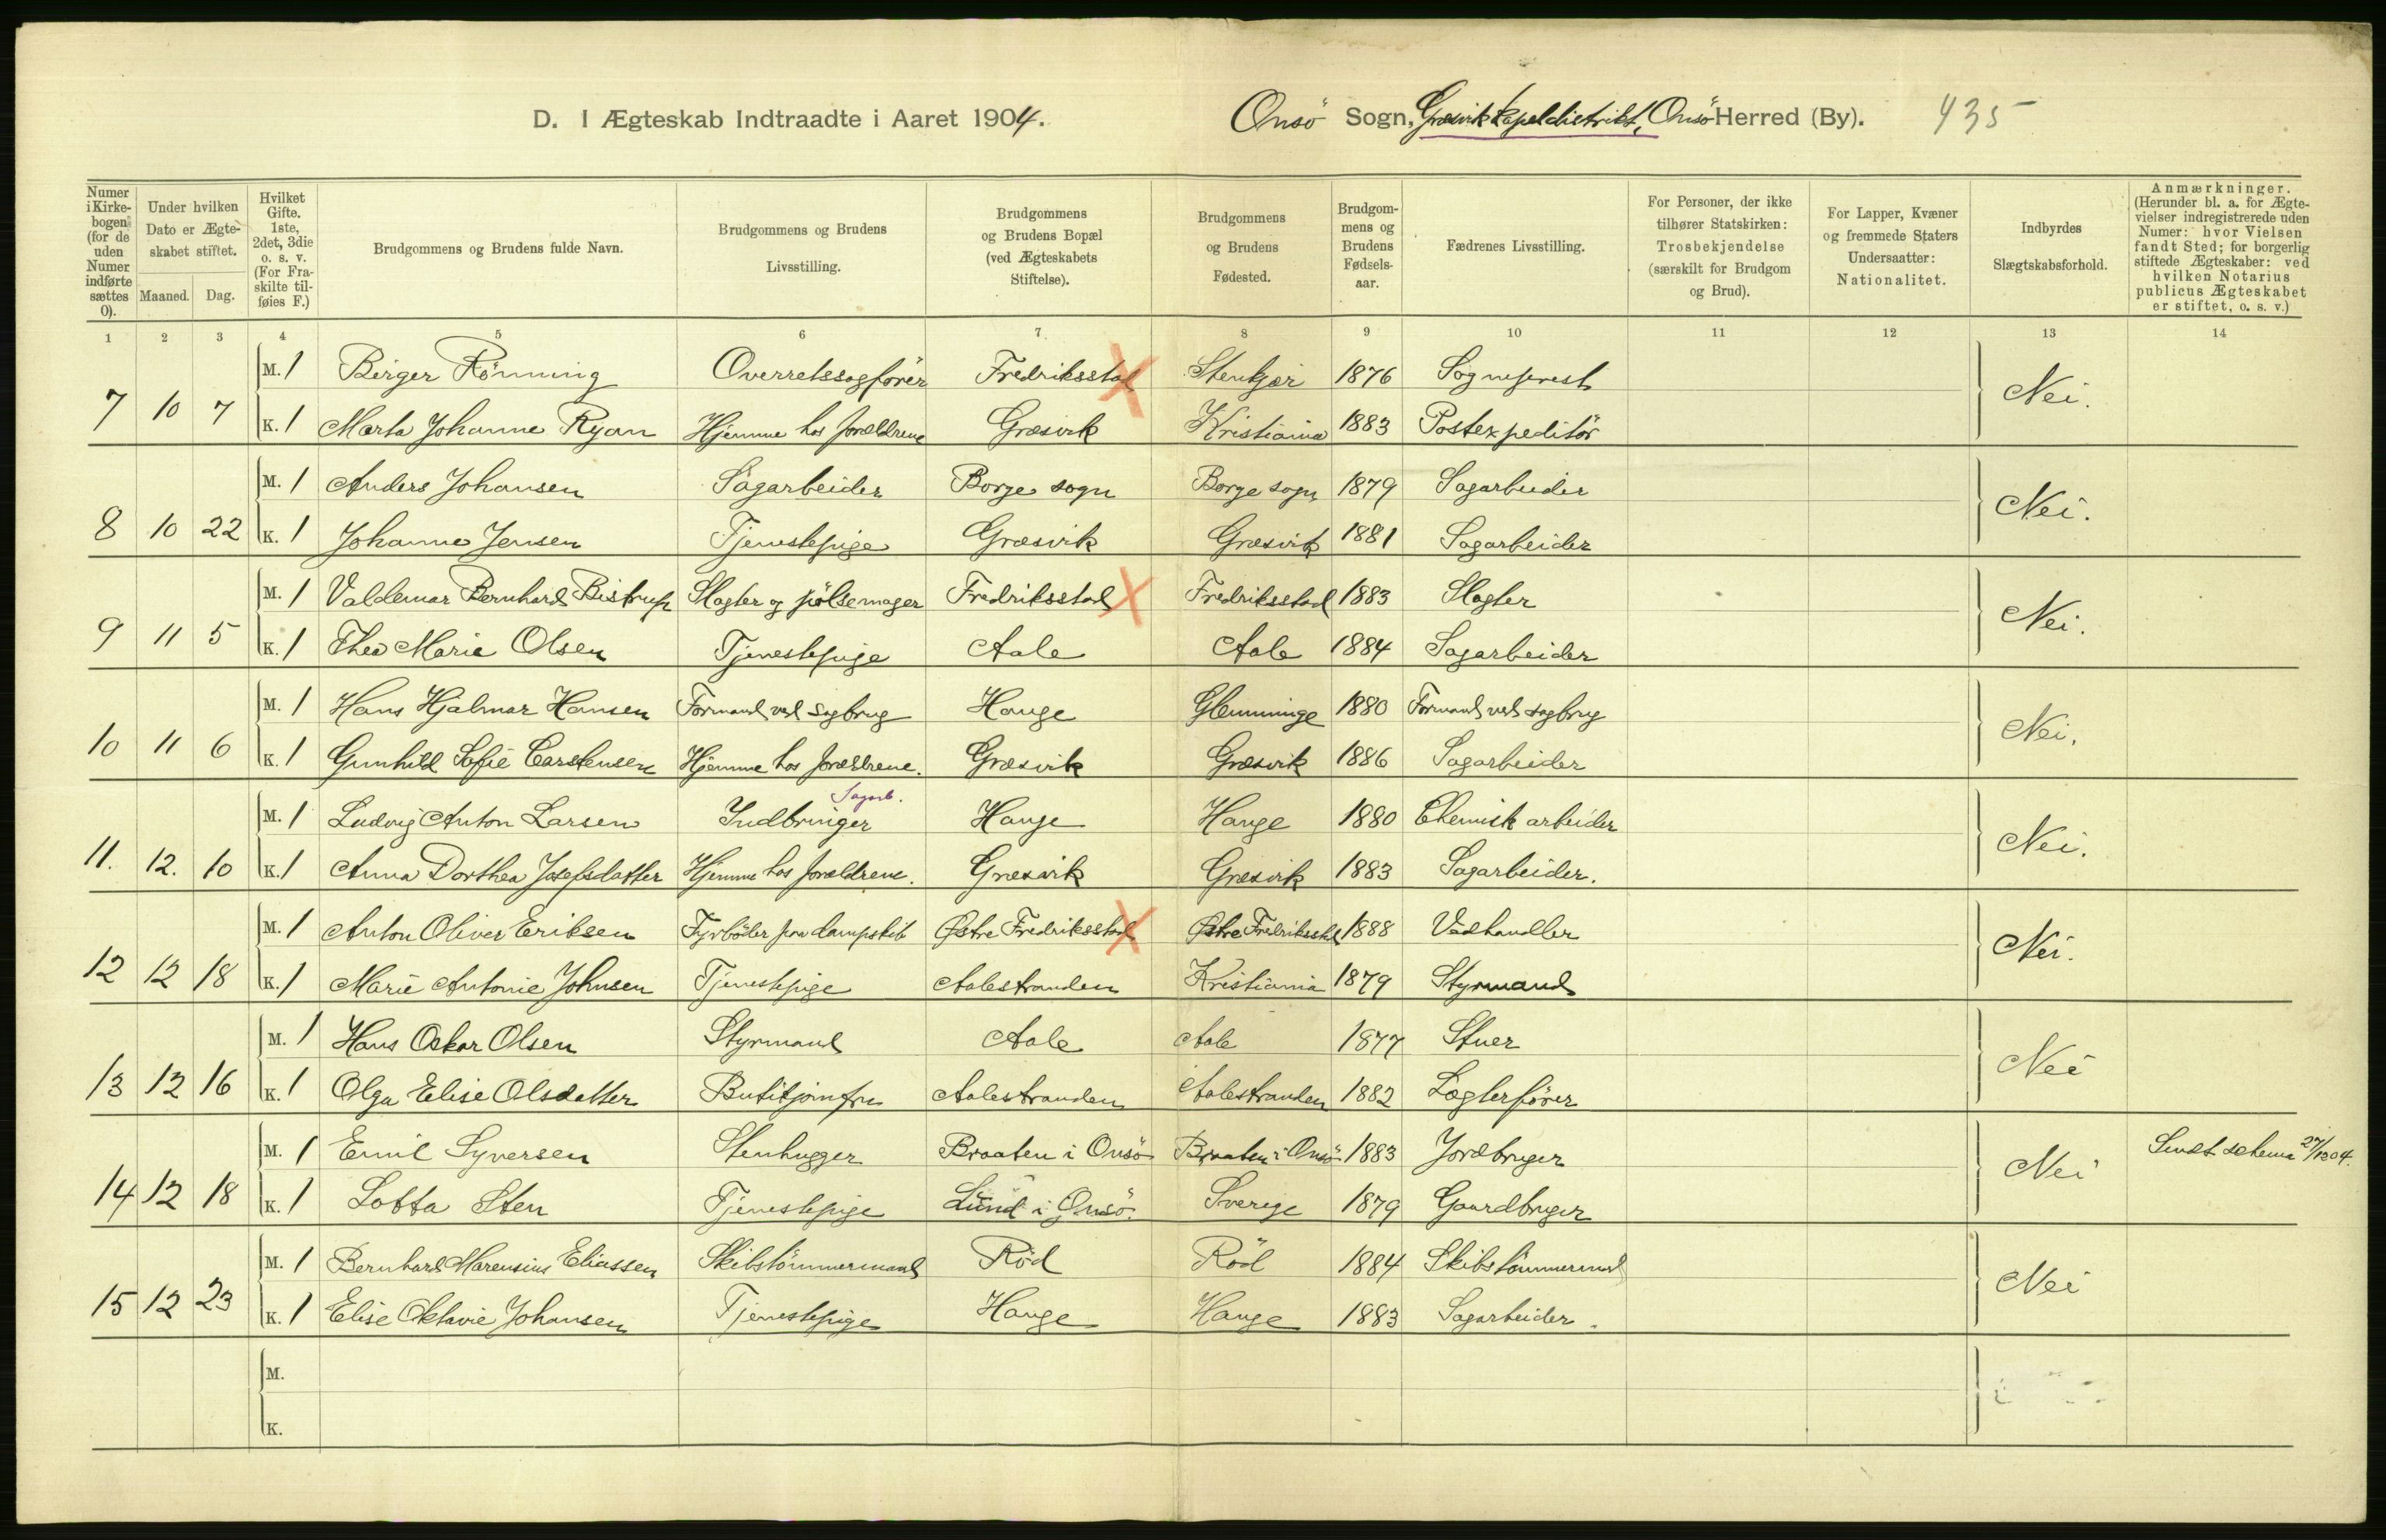 D. I Ægteskab Indtraadte i Aaret 1904. Onsö Sogn, Græsvik kapeldistrikt, Onsö Herred (By). 435
Numer i Kirkebogen (for de uden Numer indførte sættes 0).
Under hvilken Dato er Ægteskabet stiftet.
Maaned. Dag.
Hvilket Gifte. 1ste, 2det, 3die o. s. v. (For Fraskilte tilføies F.)
Brudgommens og Brudens fulde Navn.
Brudgommens og Brudens Livsstilling.
Brudgommens og Brudens Bopæl (ved Ægteskabets Stiftelse).
Brudgommens og Brudens Fødested.
Brudgommens og Brudens Fødselsaar.
Fædrenes Livsstilling.
For Personer, der ikke tilhører Statskirken: Trosbekjendelse (særskilt for Brudgom og Brud).
For Lapper, Kvæner og fremmede Staters Undersaatter: Nationalitet.
Indbyrdes Slægtskabsforhold.
Anmærkninger. (Herunder bl. a. for Ægtevielser indregistrerede uden Numer: hvor Vielsen fandt Sted; for borgerlig stiftede Ægteskaber: ved hvilken Notarius publicus Ægteskabet er stiftet, o. s. v.)
1 2 3 4 5 6 7 8 9 10 11 12 13 14
M. 1 Birger Rönning Overretssagförer Fredriksstad Stenkjær 1876 Sogneprest
7 10 7 K. 1 Marta Johanne Ryan Hjemme hos forældrene Græsvik Kristiania 1883 Postexpeditör Nei.
M. 1 Anders Johansen Sagarbeider Borge sogn Borge sogn 1879 Sagarbeider
8 10 22 K. 1 Johanne Jensen Tjenestepige Græsvik Græsvik 1881 Sagarbeider Nei.
M. 1 Valdemar Bernhard Bistrup Slagter og pölsemager Fredriksstad Fredriksstad 1883 Slagter
9 11 5 K. 1 Thea Marie Olsen Tjenestepige Aale Aale 1884 Sagarbeider Nei.
M. 1 Hans Hjalmar Hansen Formand ved sagbrug Hauge Glemminge 1880 Formand ved sagbrug
10 11 6 K. 1 Gunhild Sofie Carstensen Hjemme hos forældrene. Græsvik Græsvik 1886 Sagarbeider Nei.
Sagarb.
M. 1 Ludvig Anton Larsen Indbringer Hauge Hauge 1880 Chemisk arbeider
11. 12. 10 K. 1 Anna Dorthea Josefsdatter Hjemme hos forældrene. Græsvik Græsvik 1883 Sagarbeider. Nei.
M. 1 Anton Oliver Eriksen Fyrböder paa dampskib Østre Fredriksstad Østre Fredriksstad 1888 Vedhandler
12 12 18 K. 1 Marie Antonie Johnsen Tjenestepige Aalestranden Kristiania 1879 Styrmand Nei.
M. 1 Hans Oskar Olsen Styrmand Aale Aale 1877 Stuer
13 12 16 K. 1 Olga Elise Olsdatter Butikjomfru Aalestranden Aalestranden 1882 Lægterförer Nei
M. 1 Emil Syversen Stenhugger Braaten i Onsö Braaten i Onsö 1883 Jordbruger Sendt schema
14 12 18 K. 1 Lotta Sten Tjenestepige Lund i Onsö. Sverige 1879 Gaardbruger Nei
M. 1 Bernhard Marensius Eliassen Skibstömmermand Röd Röd 1884 Skibstömmermand
15 12 23 K. 1 Elise Oktavie Johansen Tjenestepige Hauge Hauge 1883 Sagarbeider. Nei
M.
K.